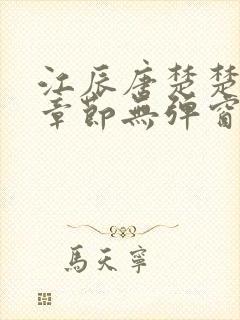 江辰唐楚楚
章節無彈窗
馬天寧